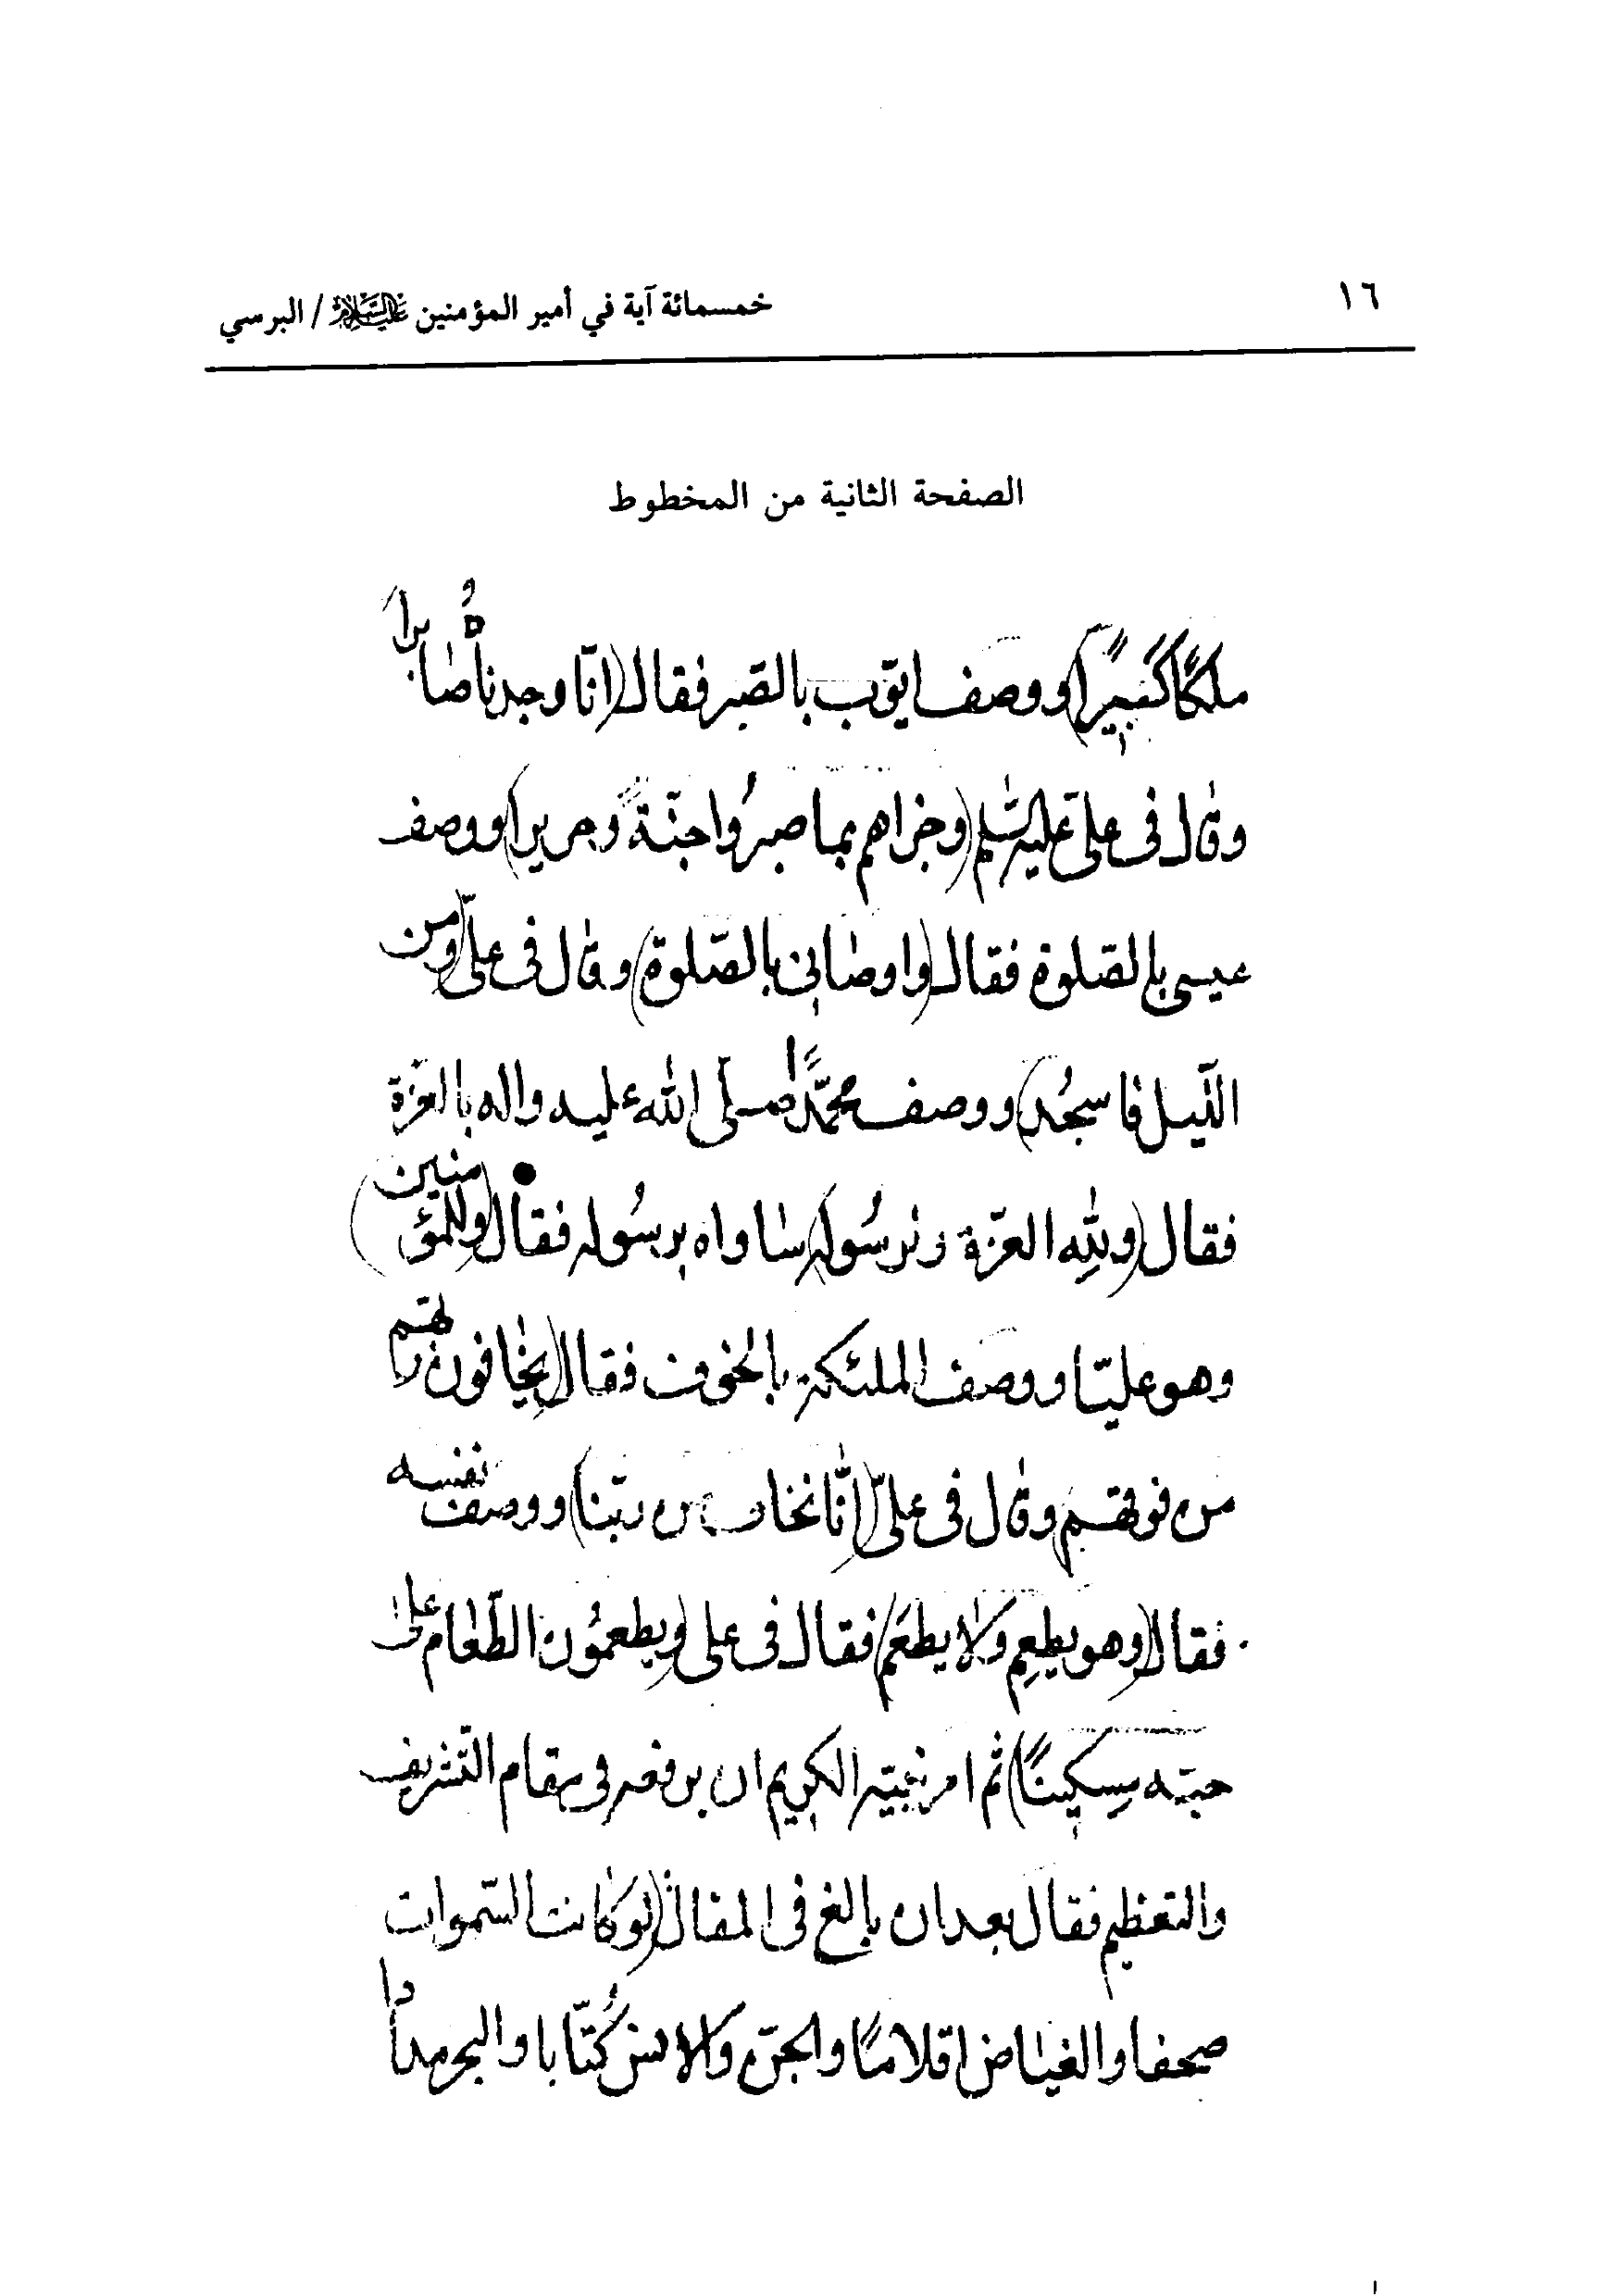 ١٦
خمسمائة آية في أمير المؤمنين عليه السلام / البرسي
الصفحة الثانية من المخطوط
ملكًا كبيرًا) ووصف ايّوب بالصّبر فقال (انّا وجدناه صابراً
وقال فى على عليه السّلم (وجزاهم بما صبرُوا جنّةً وحريرا) ووصف
عيسى بالصّلوة فقال (واوصانى بالصّلوة) وقال فى علىّ (ومن
اللّيل فاسجُد) ووصف محمّدًا صلى الله عليه واله بالعزّة
فقال (وللهِ العزّة ولرسُوله) ساواه برسُوله فقال (وللمؤمنين)
وهو عليّا ووصف الملئكة بالخوف فقال (يخافون ربّهم
من فوقهم) وقال فى علىّ (انّا نخاف من ربّنا) ووصف نفسه
فقال (وهو يطعِم ولا يطعَم) فقال فى على (ويطعمُون الطّعام على
حبّه مِسكينًا) ثم امر نبيّه الكريم ان يرفعه فى مقام التّشريف
والتعظيم فقال بعد ان بالغ فى المقال (لو كانت السّموات
صحفا والغياض اقلامًا والجنّ والانس كُتّابا والبحر مداداً